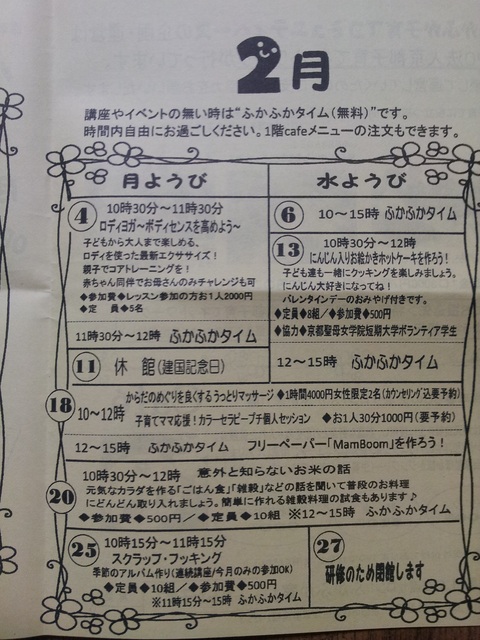 2月
講座やイベントの無い時は“ふかふかタイム（無料）”です。
時間内自由にお過ごしください。1階cafeメニューの注文もできます。
月ようび
水ようび
4 10時30分～11時30分
ロディヨガ～ボディセンスを高めよう～
子どもから大人まで楽しめる、
ロディを使った最新エクササイズ！
親子でコアトレーニングを！
赤ちゃん同伴でお母さんのみチャレンジも可
◆参加費◆レッスン参加の方お1人2000円
◆定 員◆5名
11時30分～12時 ふかふかタイム
6 10～15時 ふかふかタイム
13 10時30分～12時
にんじん入りお絵かきホットケーキを作ろう！
子ども達も一緒にクッキングを楽しみましょう。
にんじん大好きになってね！
バレンタインデーのおみやげ付きです。
◆定員◆8組／◆参加費◆500円
◆協力◆京都聖母女学院短期大学ボランティア学生
12～15時 ふかふかタイム
11 休 館（建国記念日）
18 10～12時
からだのめぐりを良くするうっとりマッサージ ◆1時間4000円女性限定2名（カウンセリング込要予約）
子育てママ応援！カラーセラピープチ個人セッション ◆お1人30分1000円（要予約）
12～15時 ふかふかタイム フリーペーパー「MamBoom」を作ろう！
20 10時30分～12時 意外と知らないお米の話
元気なカラダを作る「ごはん食」「雑穀」などの話を聞いて普段のお料理
にどんどん取り入れましょう。簡単に作れる雑穀料理の試食もあります♪
◆参加費◆500円／◆定員◆10組 ※12～15時 ふかふかタイム
25 10時15分～11時15分
スクラップ・ブッキング
季節のアルバム作り（連続講座/今月のみの参加OK）
◆定員◆10組／◆参加費◆500円
※11時15分～15時 ふかふかタイム
27
研修のため閉館します